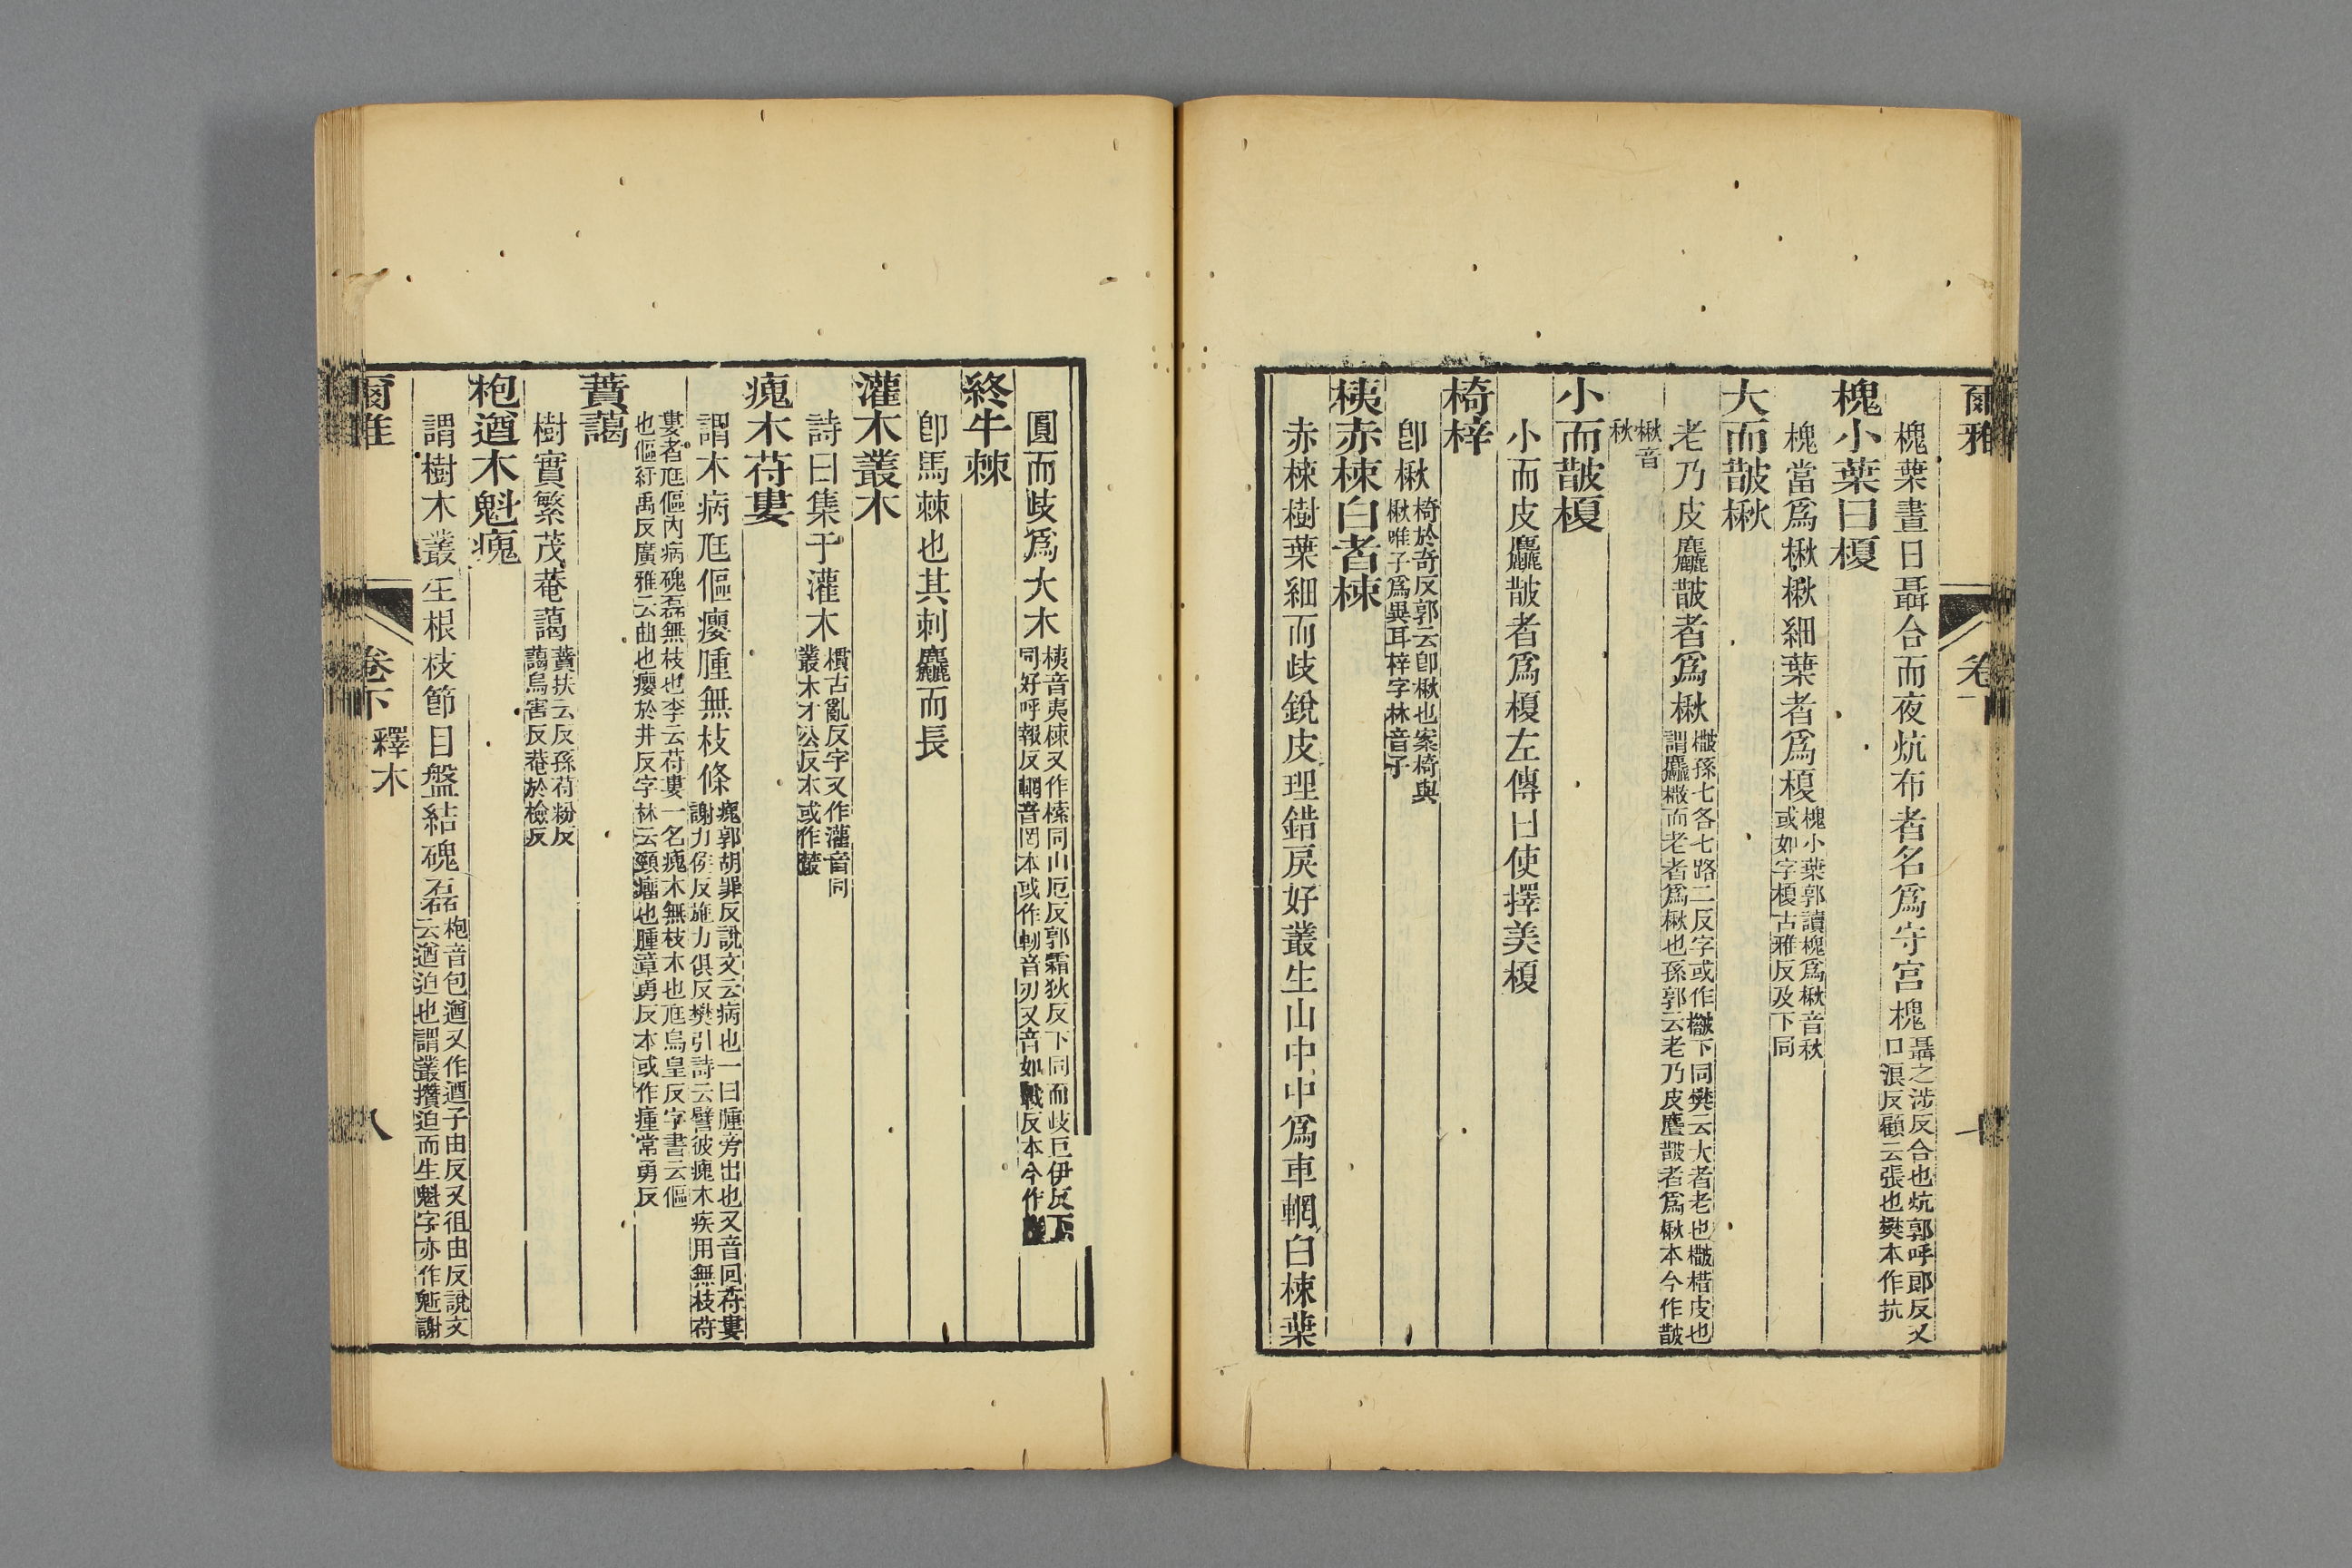 爾雅 卷
槐葉晝日聶合而夜炕布者名爲守宮槐聶之涉反合也炕郭呼郞反又口浪反顧云張也樊本作抗
槐小葉曰榎
槐當爲楸楸細葉者爲榎槐小葉郭讀槐爲楸音秋或如字榎古雅反及下同
大而皵楸
老乃皮麤皵者爲楸㰂孫七各七路二反字或作㰂下同樊云大者老也㰂楷皮也謂麤㰂而老者爲楸也孫郭云老乃皮麤皵者爲楸本今作皵
楸音秋
小而皵榎
小而皮麤皵者爲榎左傳曰使擇美榎
椅梓
卽楸椅於奇反郭云卽楸也案椅與楸唯子爲異耳梓字林音子
桋赤楝白者楝
赤楝樹葉細而歧銳皮理錯戾好叢生山中中爲車輞白楝葉
圓而歧爲大木桋音夷楝又作樉同山厄反郭霜狄反下同而歧巨伊反下同好呼報反輞音罔本或作軔音刃又音如戰反本今作
終牛棘
卽馬棘也其刺麤而長
灌木叢木
詩曰集于灌木樌古亂反字又作灌音同叢木才公反本或作藂
瘣木苻婁
謂木病尫傴癭腫無枝條瘣郭胡罪反說文云病也一曰腫旁出也又音回苻婁謝力侯反施力俱反樊引詩云譬彼瘣木疾用無枝苻
婁者尫傴內病磈磊無枝也李云苻婁一名瘣木無枝木也尫烏皇反字書云傴也傴紆禹反廣雅云曲也癭於井反字林云頸瘤也腫章勇反本或作㾻常勇反
蕡藹
樹實繁茂菴藹蕡扶云反孫苻粉反藹烏害反菴於檢反
枹遒木魁瘣
謂樹木叢生根枝節目盤結磈磊枹音包遒又作逎子由反又徂由反說文云遒迫也謂叢攢迫而生魁字亦作𣁽謝
爾雅 卷下 釋木 八